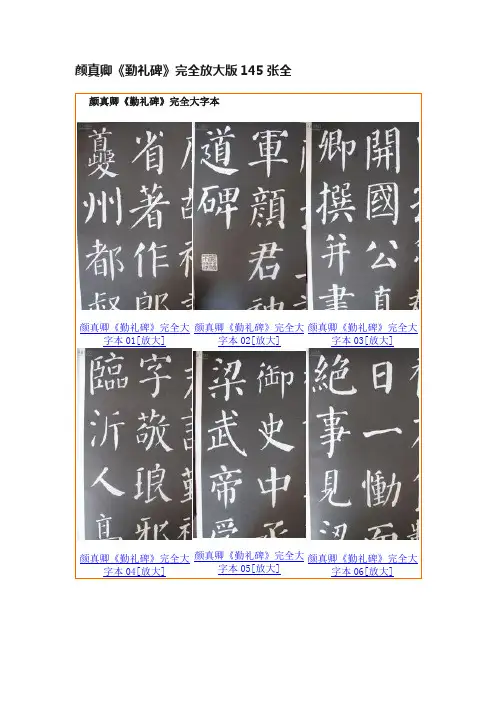 颜真卿《勤礼碑》完全放大版145张全
颜真卿《勤礼碑》完全大字本
省著作郎
夔州都督
軍顏君神
道碑
開國公真
卿撰并書
颜真卿《勤礼碑》完全大
字本01[放大]
颜真卿《勤礼碑》完全大
字本02[放大]
颜真卿《勤礼碑》完全大
字本03[放大]
字敬琅邪
臨沂人高
御史中丞
梁武帝受
日一慟而
絕事見梁
颜真卿《勤礼碑》完全大
字本04[放大]
颜真卿《勤礼碑》完全大
字本05[放大]
颜真卿《勤礼碑》完全大
字本06[放大]